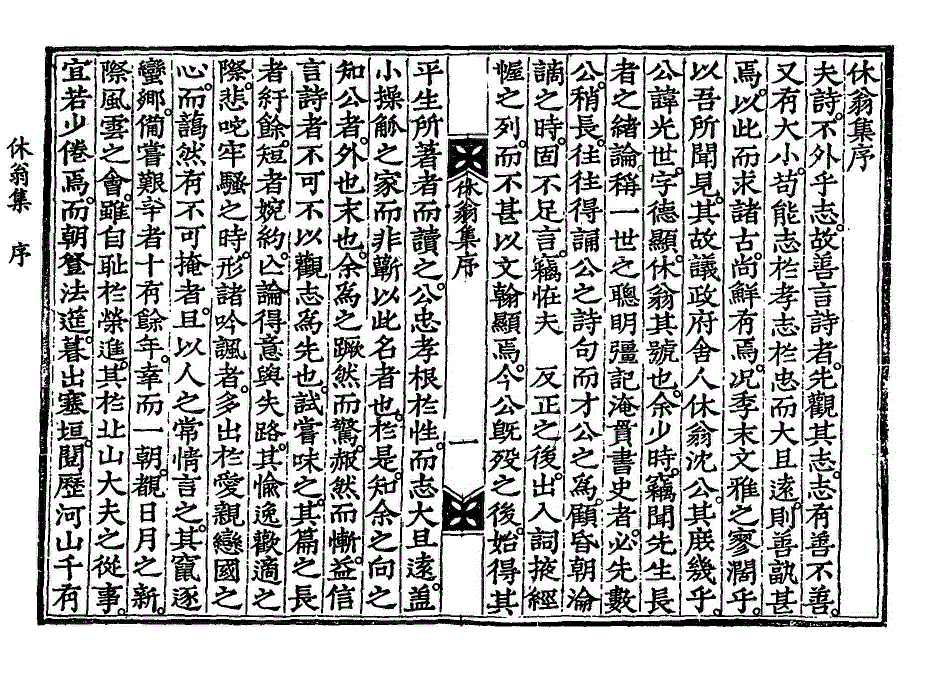 休翁集序
夫詩。不外乎志。故善言詩者。先觀其志。志有善不善。
又有大小。苟能志於孝志於忠而大且遠。則善孰甚
焉。以此而求諸古。尚鮮有焉。况季末文雅之寥濶乎。
以吾所聞見。其故議政府舍人休翁沈公。其庶幾乎。
公諱光世。字德顯。休翁其號也。余少時。竊聞先生長
者之緖論。稱一世之聰明彊記淹貫書史者。必先數
公。稍長。往往得誦公之詩句。而才公之爲顧昏朝淪
謫之時。固不足言。竊恠夫 反正之後。出入詞掖經
幄之列。而不甚以文翰顯焉。今公旣歿之後。始得其
休翁集序
一
平生所著者而讀之。公忠孝根於性。而志大且遠。盖
小操觚之家而非蘄以此名者也。於是。知余之向之
知公者。外也末也。余爲之蹶然而驚。赧然而慚。益信
言詩者不可不以觀志爲先也。試嘗味之。其篇之長
者紆餘。短者婉約。亾論得意與失路。其愉逸歡適之
際。悲咜牢騷之時。形諸吟諷者。多出於愛親戀國之
心。而藹然有不可掩者。且以人之常情言之。其竄逐
蠻鄕。備嘗艱辛者十有餘年。幸而一朝。覩日月之新。
際風雲之會。雖自耻於榮進。其於北山大夫之從事。
宜若少倦焉。而朝登法筵。暮出塞垣。閱歷河山千有
休翁集 序